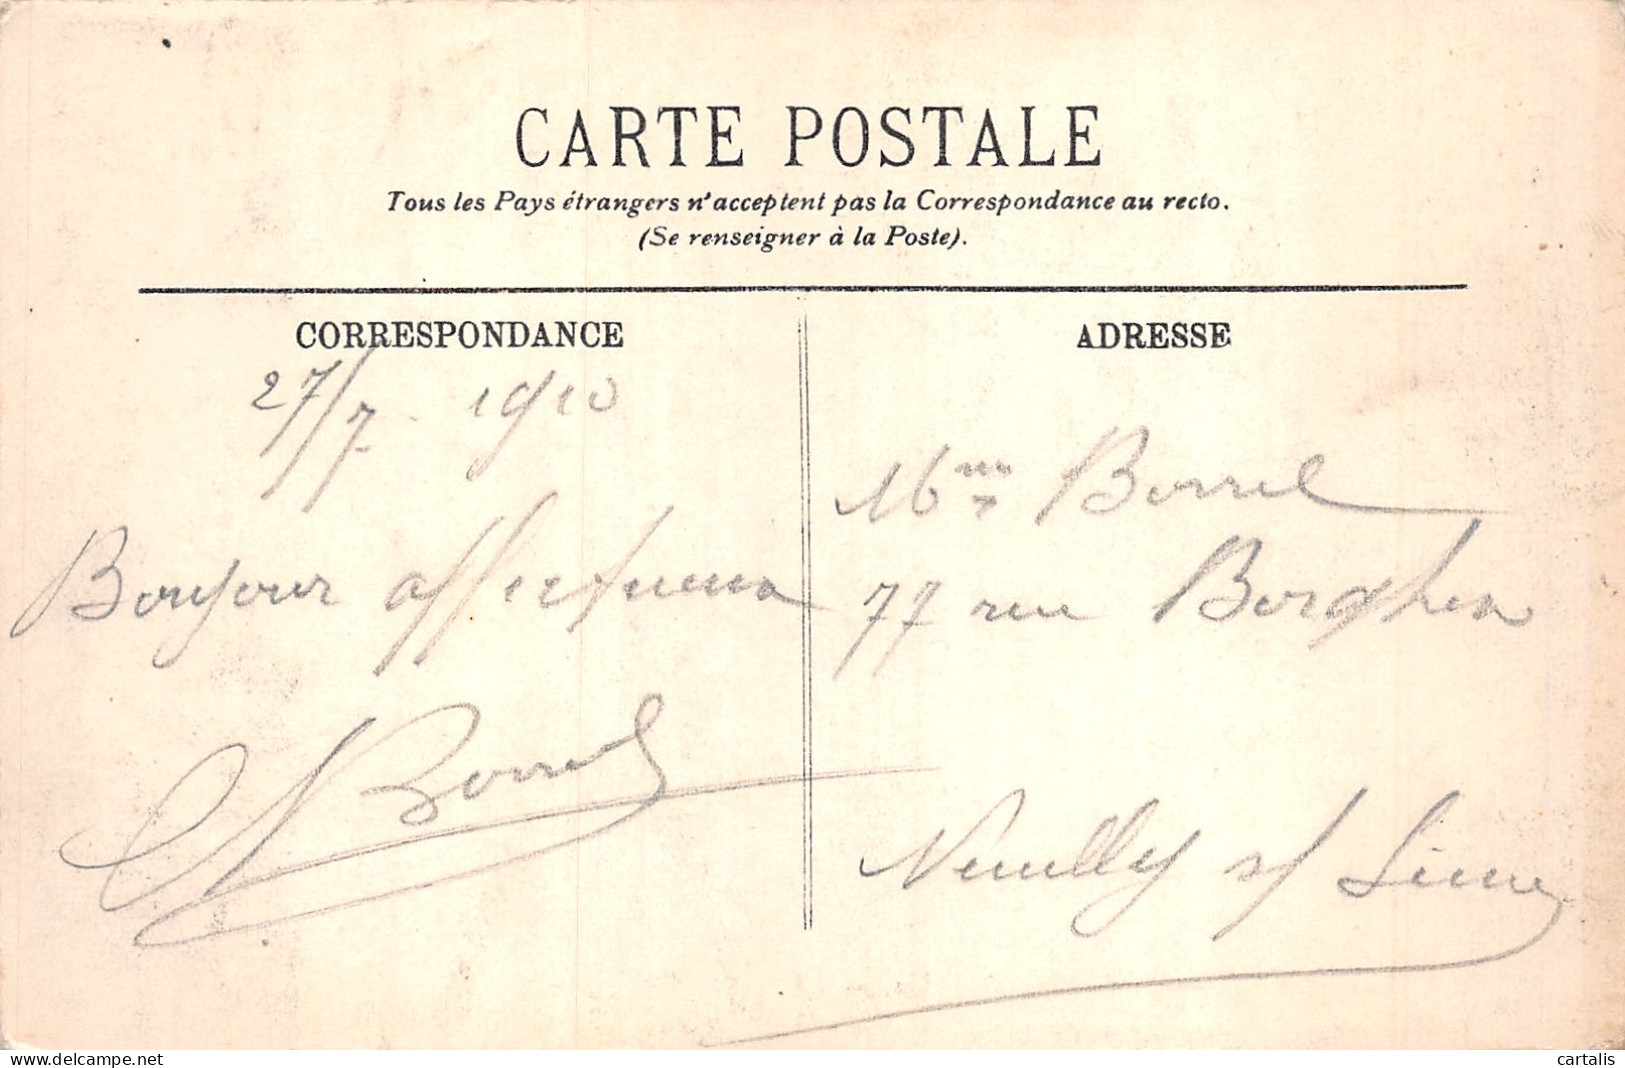 CARTE POSTALE
Tous les Pays étrangers n'acceptent pas la Correspondance au recto.
(Se renseigner à la Poste).
CORRESPONDANCE
27/7 1910
Bonjour affectueux
Borrel
ADRESSE
Mme Borrel
77 rue Borghèse
Neuilly s/ Seine
delcampe.net
cartalis